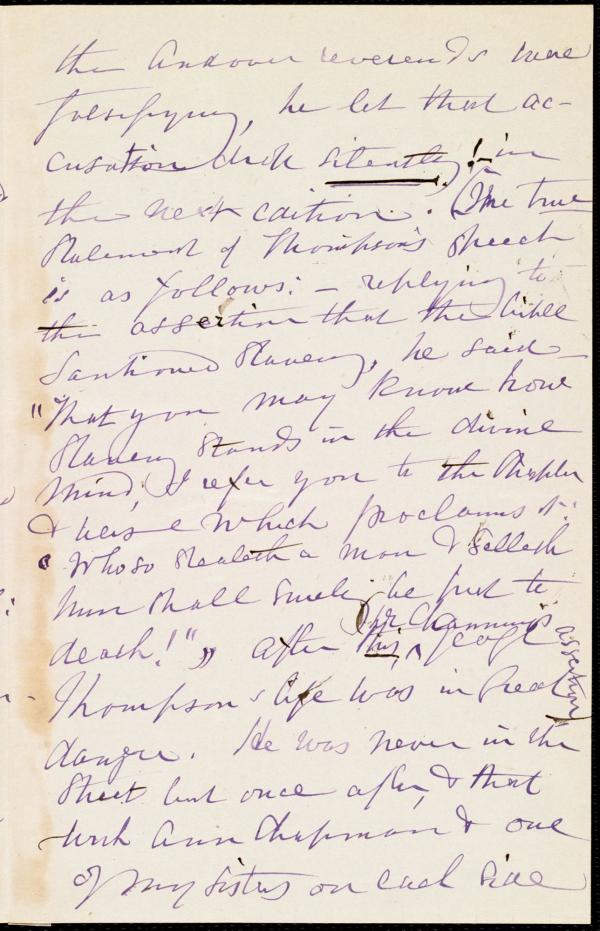 the Andover reverends were
falsifying, he let that ac-
cusation drop silently! in
the next edition. (The true
statement of Thompson's speech
is as follows: - replying to
the assertion that the bible
Santioned Slavery, he said -
"That you may know how
Slavery stands in the divine
mind, I refer you to the Chapter
& verse which proclaims it:
"Whoso stealeth a man & selleth
him shall surely be put to
death!"" after this, Dr Channing's assertion, George
Thompson's life was in great
danger. He was never in the
Street but once after, & that
with Ann Chapman & one
of my sisters on each side